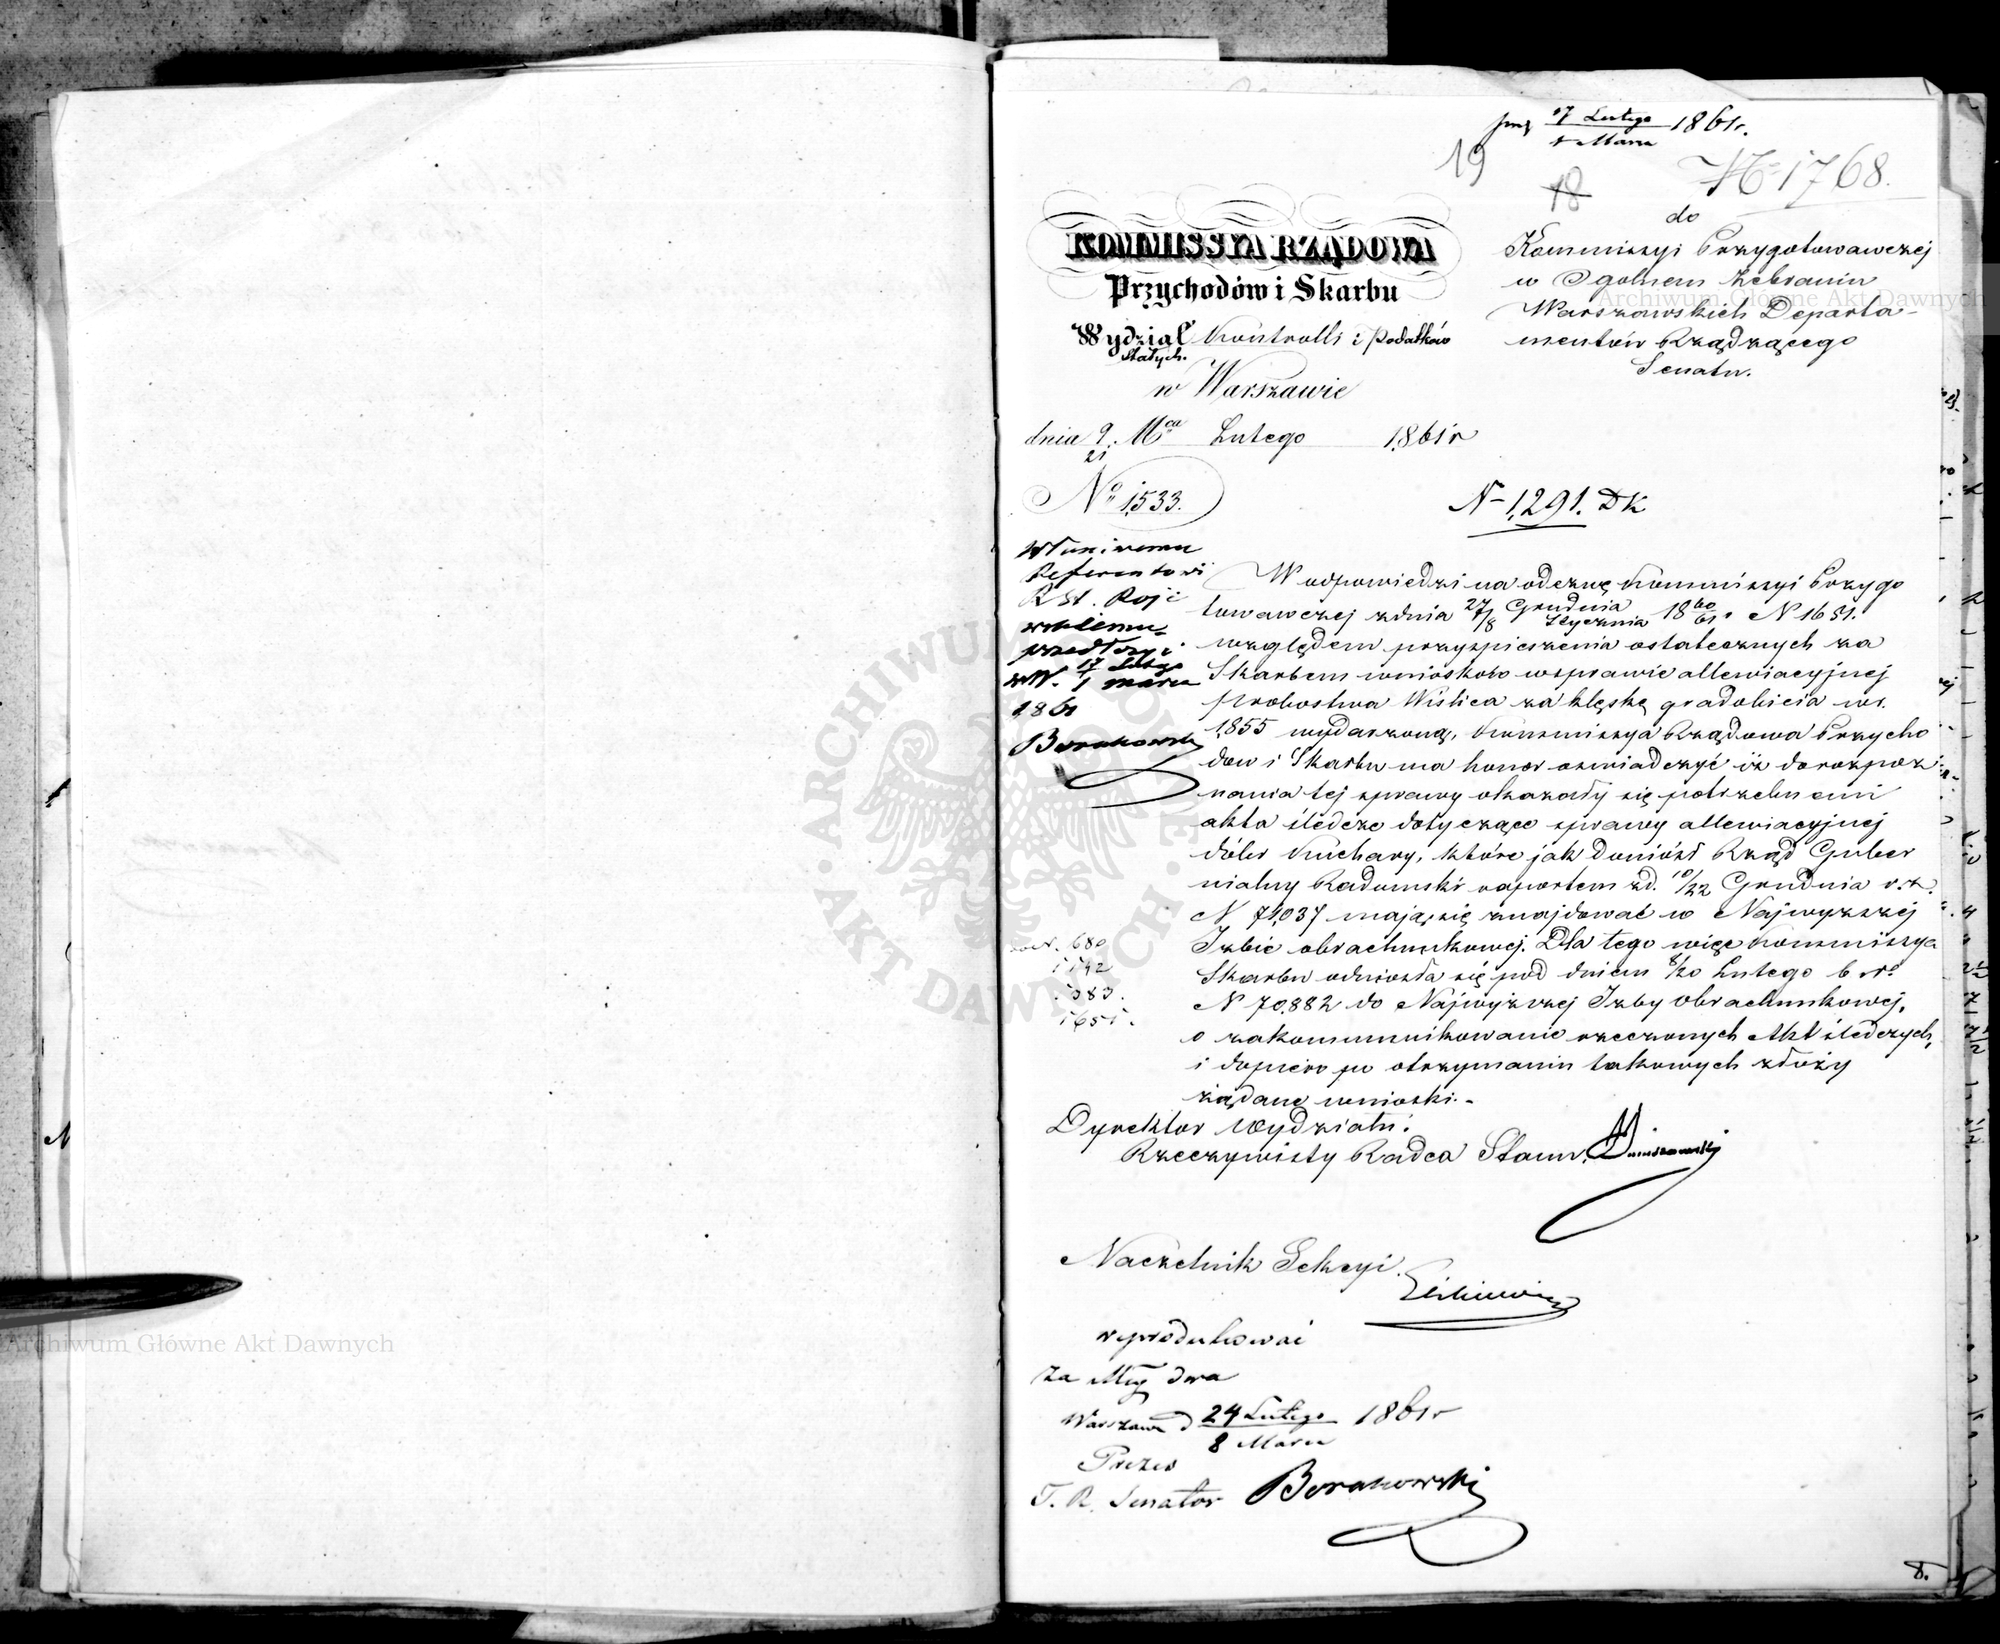 17 Lutego
1 Marca 1861r.
19
18
№ 1768.
KOMMISSYA RZĄDOWA
Przychodów i Skarbu
Wydział Kontrolli i Podatków
Stałych.
w Warszawie
dnia 9/21 Mca Lutego 1861r
No 1533.
do
Kommissyi Przygotowawczej
w Ogolnem Zebraniu
Warszawskich Departa-
mentów Rządzącego
Senatu.
N 1,291. DK
Referentowi
R St.
17 Lutego
1 Marca
1861
Borakowski
W odpowiedzi na odezwę Kommissyi Przygo
towawczej z dnia 27/8 Grudnia/Stycznia 1860/61 r N 1651.
względem przyspieszenia ostatecznych za
Skarbem wniosków w sprawie allewiacyjnej
probostwa Wiślica za klęskę gradobicia w r.
1855 wydarzoną, Kommissya Rządowa Przycho
dow i Skarbu ma honor oświadczyć iż do rozpoz
nania tej sprawy okazały się potrzebnemi
akta śledcze dotyczące sprawy allewiacyjnej
dóbr Kuchary, które jak doniósł Rząd Guber
nialny Radomski raportem z d. 10/22 Grudnia r. z.
N 71,037 mają się znajdować w Najwyższej
Izbie obrachunkowej. Dla tego więc Kommissya
Skarbu odniosła się pod dniem 8/20 Lutego b. r.
N 70,882 do Najwyższej Izby Obrachunkowej,
o zakommunikowanie rzeczonych Akt śledczych,
i dopiero po otrzymaniu takowych złoży
żądane wnioski.-
680
1142
1383.
1651.
Dyrektor Wydziału:
Rzeczywisty Radca Stanu,
Naczelnik Sekcyi
reprodukować
Za Mcy dwa
Warszawa d 24 Lutego
8 Marca 1861r
Prezes
T. R. Senator Borakowski
8.
ARCHIWUM GŁÓWNE AKT DAWNYCH
Archiwum Główne Akt Dawnych
Archiwum Główne Akt Dawnych